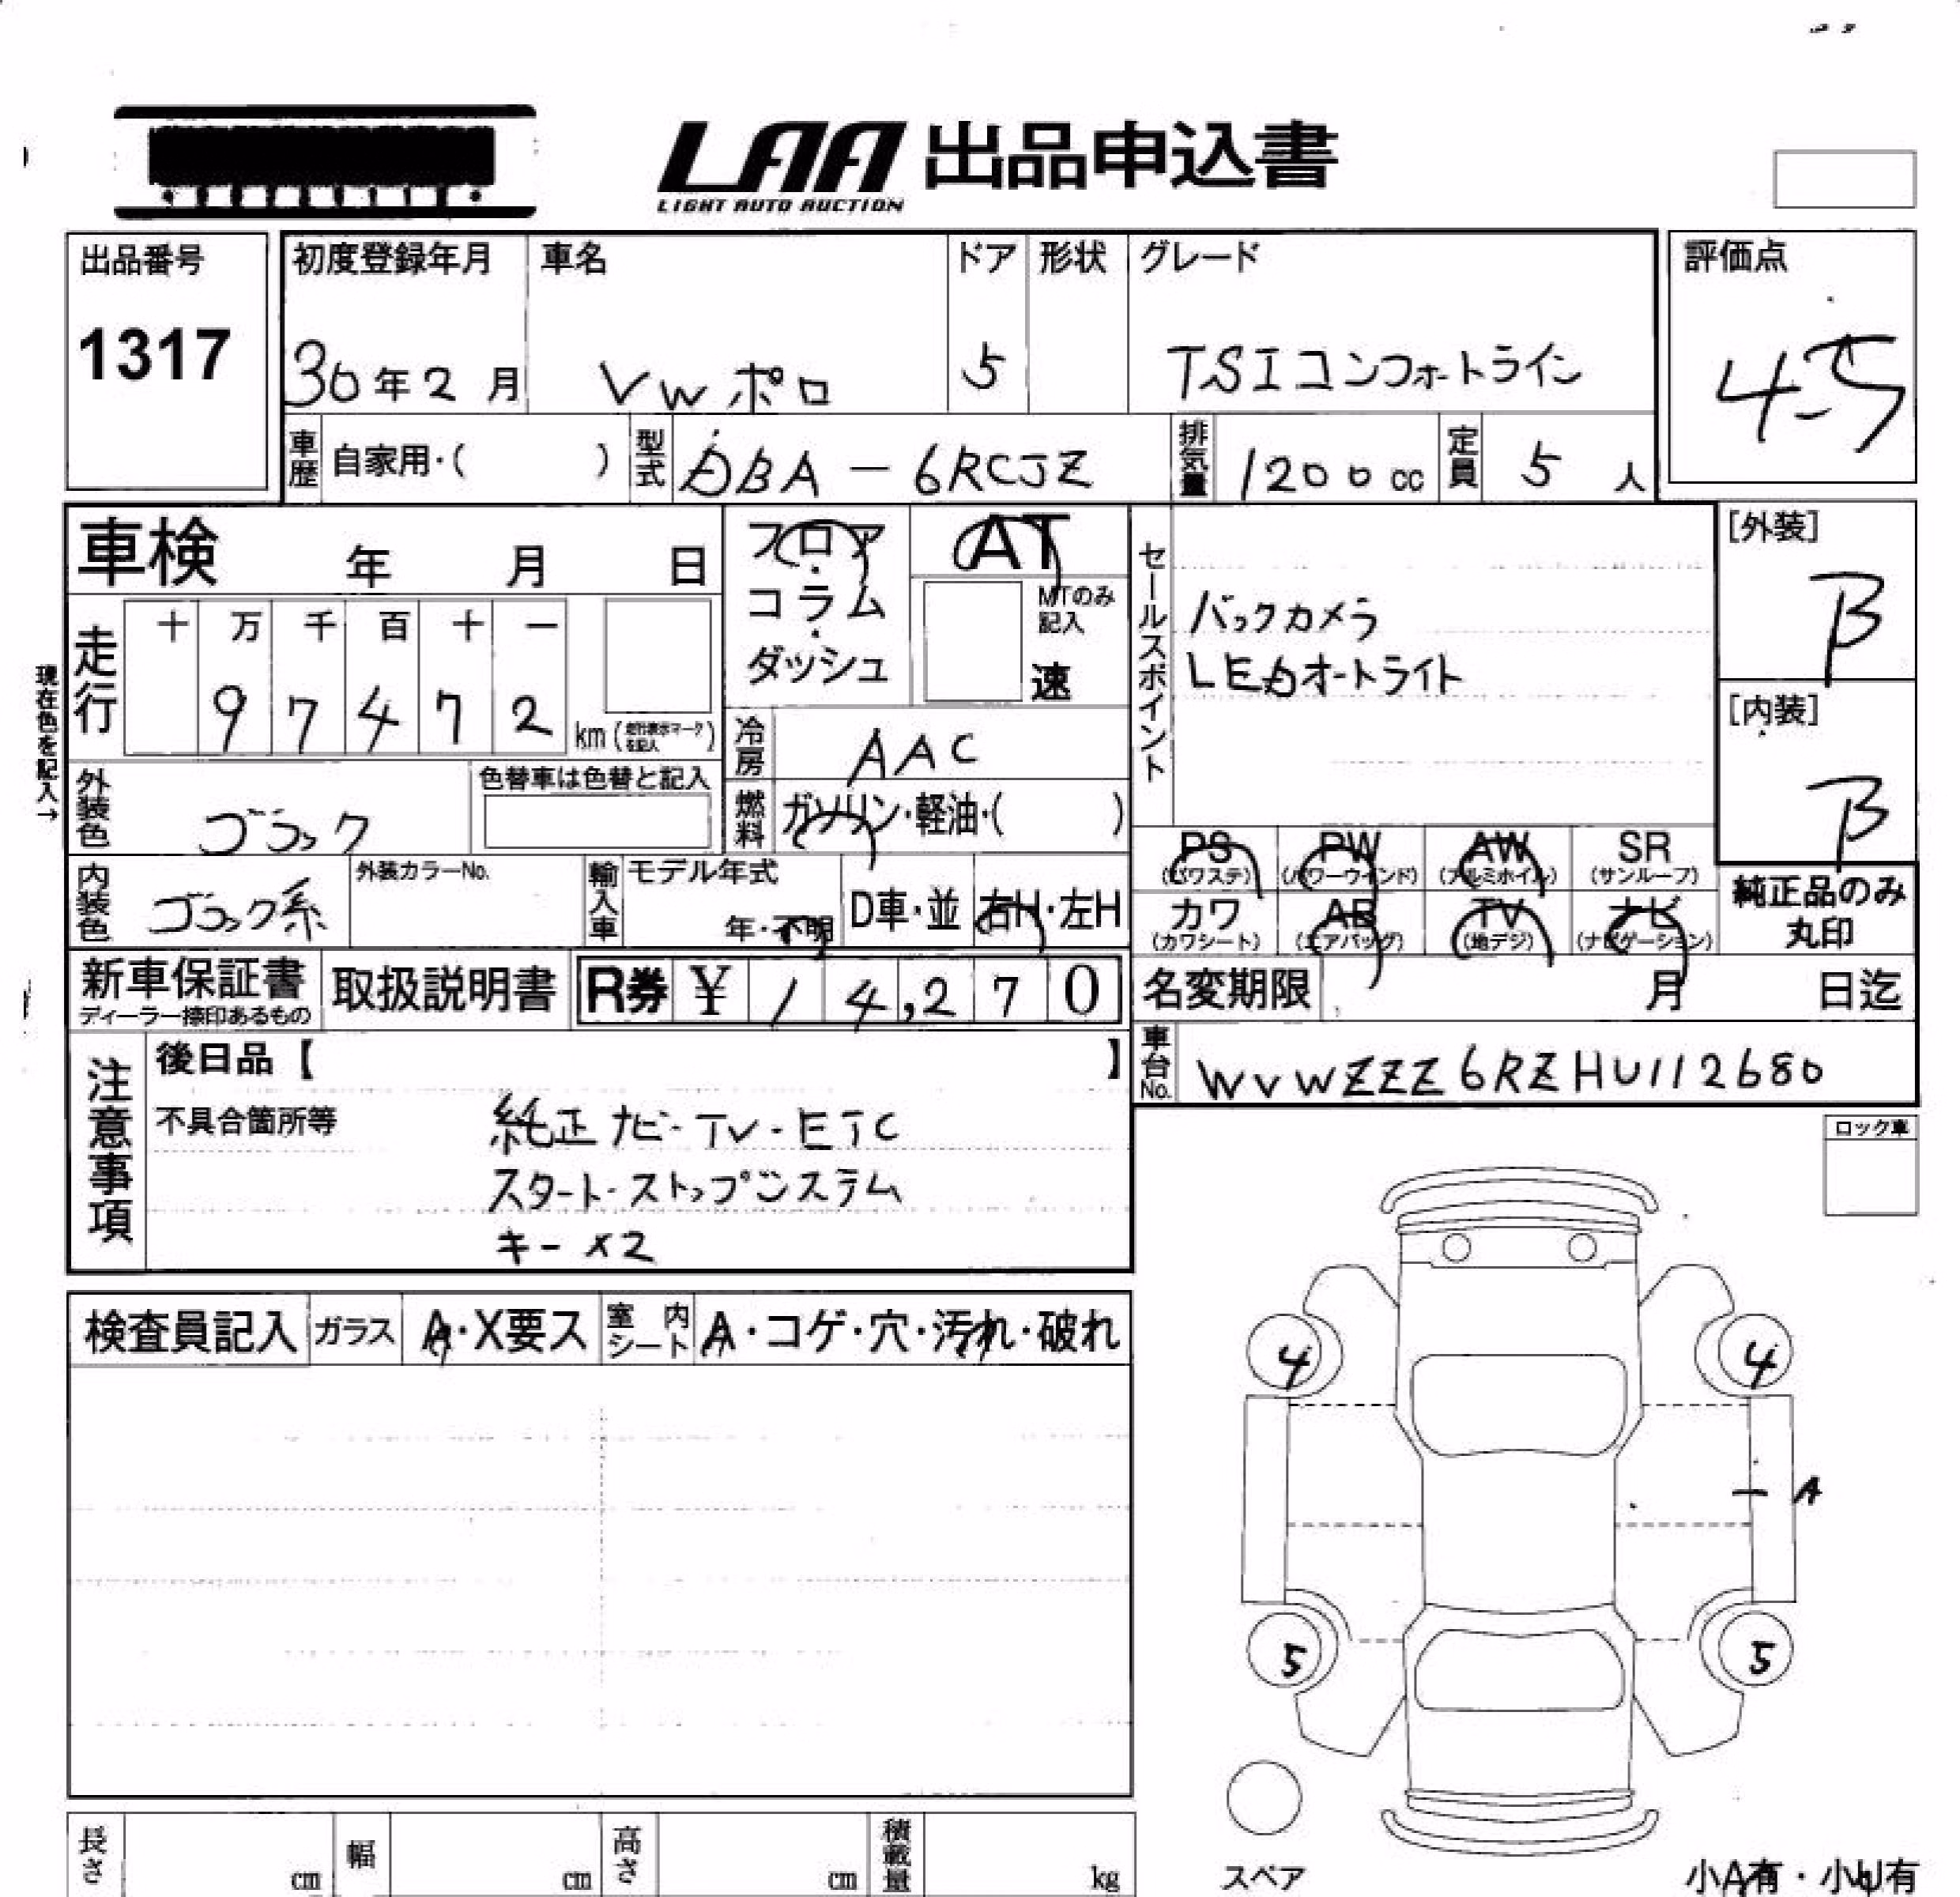 LAA 出品申込書
LIGHT AUTO AUCTION
出品番号
1317
初度登録年月
30年2月
車名
VWポロ
ドア
5
形状
グレード
TSIコンフォートライン
評価点
4.5
車歴 自家用・( )
型式 DBA-6RCJZ
排気量 1200cc
定員 5人
車検 年 月 日
フロア・コラム・ダッシュ
AT
MTのみ記入
速
セールスポイント
バックカメラ
LEDオートライト
[外装]
B
[内装]
B
現在色を記入→
走行
十 万 千 百 十 一
9 7 4 7 2
km(走行表示マークを記入)
冷房 AAC
燃料 ガソリン・軽油・( )
外装色 ブラック
色替車は色替と記入
内装色 ブラック系
外装カラーNo.
輸入車
モデル年式
年・不明
D車・並
右H・左H
PS (パワステ)
PW (パワーウインド)
AW (アルミホイル)
SR (サンルーフ)
カワ (カワシート)
AB (エアバッグ)
TV (地デジ)
ナビ (ナビゲーション)
純正品のみ丸印
新車保証書
ディーラー捺印あるもの
取扱説明書
R券 ¥ 14,270
名変期限 月 日迄
車台No. WVWZZZ6RZHU112680
注意事項
後日品【 】
不具合箇所等
純正ナビ・TV・ETC
スタート・ストップシステム
キー×2
ロック車
検査員記入
ガラス A・X要ス
室内シート A・コゲ・穴・汚れ・破れ
4
4
A
5
5
スペア
小A有・小U有
長さ cm
幅 cm
高さ cm
積載量 kg